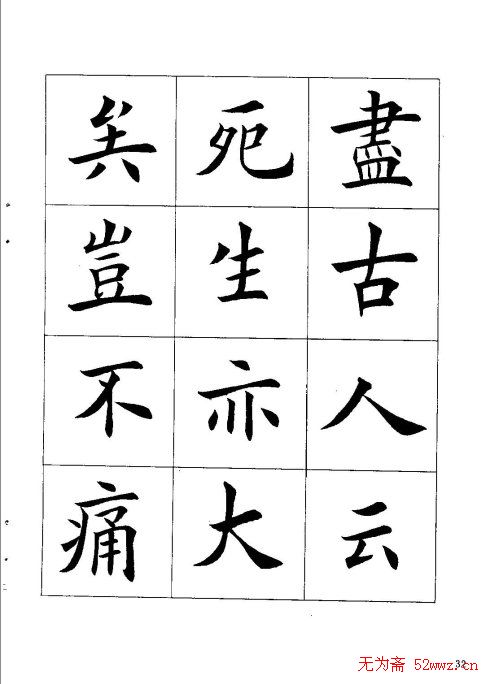 盡古人云
死生亦大
矣豈不痛
32
无为斋 52wwz.cn